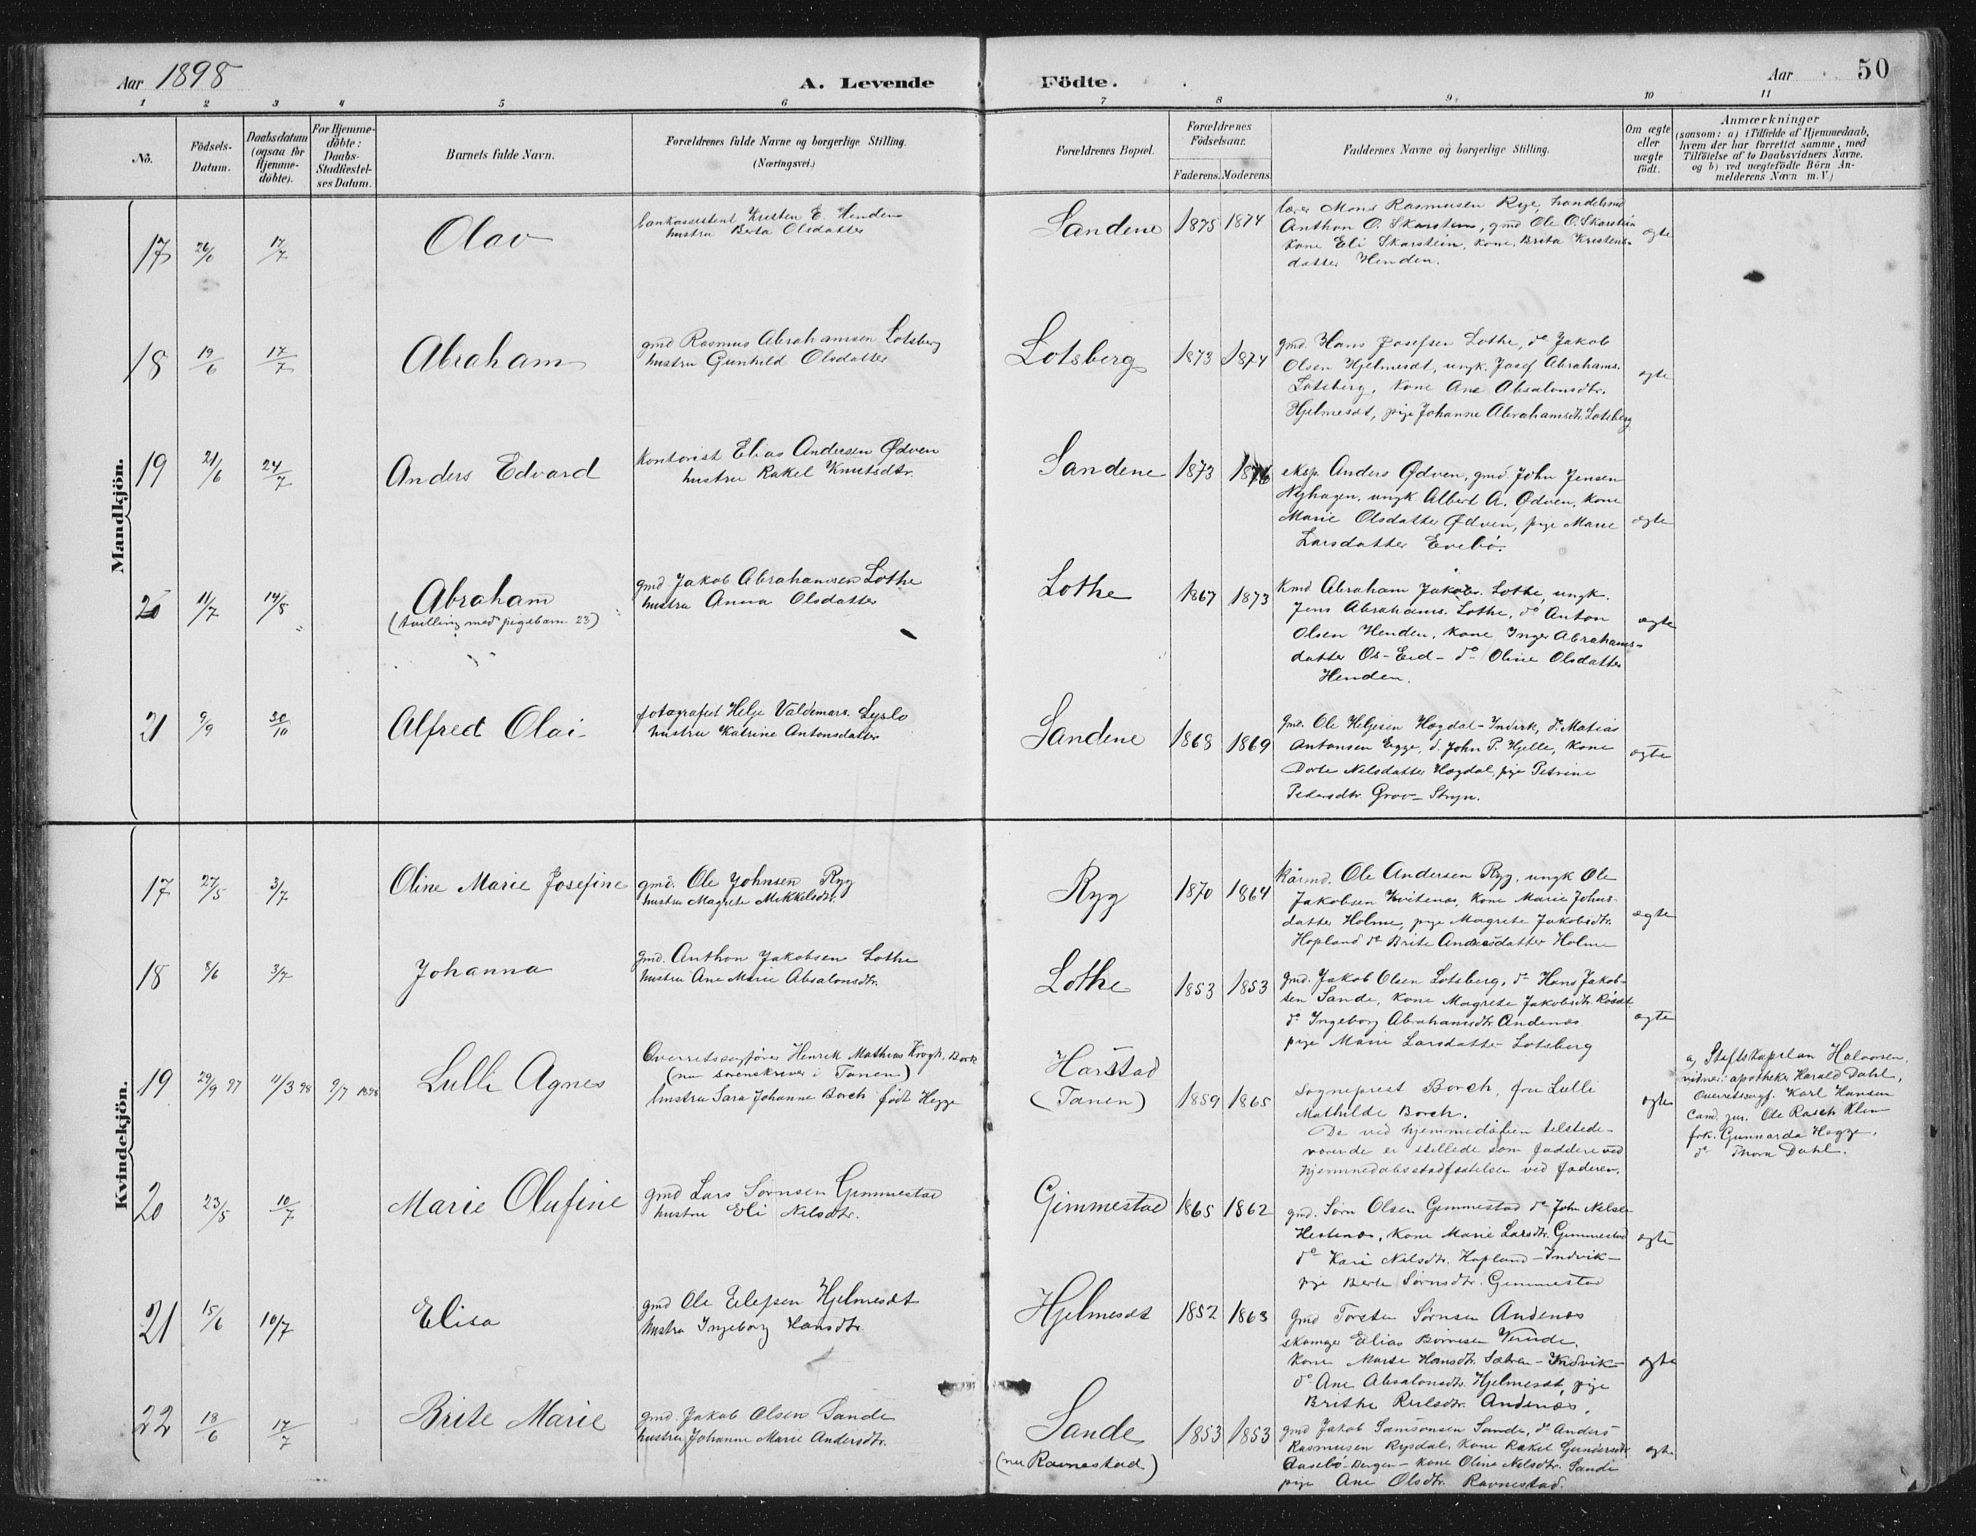 Aar 1898
A. Levende Födte.
Aar
50
1 2 3 4 5 6 7 8 9 10 11
No.
Födsels-Datum.
Daabsdatum (ogsaa for Hjemme-döbte).
For Hjemme-döbte: Daabs-Stadfæstel-ses Datum.
Barnets fulde Navn.
Forældrenes fulde Navne og borgerlige Stilling. (Næringsvei.)
Forældrenes Bopæl.
Forældrenes Födselsaar.
Faderens. Moderens.
Faddernes Navne og borgerlige Stilling.
Om ægte eller uægte födt.
Anmærkninger
(saasom: a) i Tilfælde af Hjemmedaab,
hvem der har forrettet samme, med
Tilföielse af to Daabsvidners Navne.
og b) ved uægtefödte Börn An-
melderens Navn m. V.)
Mandkjön.
17 26/6 17/7 Olav
bankassistent Kristen E. Henden
hustru Berta Olsdatter
Sandene 1875 1874
lærer Mons Rasmusen Rye, handelsmd
Anthon O. Skarstein, gmd Ole O. Skarstein
kone Eli Skarstein, kone Brita Kristens-
datter Henden.
ægte
18 19/6 17/7 Abraham
gmd Rasmus Abrahamsen Lotsberg
hustru Gunhild Olsdatter
Lotsberg 1873 1874
gmd. Hans Josefsen Lothe, do Jakob
Olsen Hjelmeset, ungk. Josef Abrahams.
Lotsberg, kone Ane Absalonsdtr.
Hjelmeset, pige Johanne Abrahamsdtr. Lotsberg
ægte
19 21/6 24/7 Anders Edvard
kontorist Elias Andersen Ødven
hustru Rakel Knutsdtr.
Sandene 1873 1876
eksp. Anders Ødven, gmd John Jensen
Nyhagen, ungk Albert A. Ødven, kone
Marie Olsdatter Ødven, pige Marie
Larsdatter Evebö.
ægte
20 11/7 14/8 Abraham
(tvilling med pigebarn 23)
gmd Jakob Abrahamsen Lothe
hustru Anna Olsdatter
Lothe 1867 1873
Kmd Abraham Jakobs. Lothe, ungk.
Jens Abrahams. Lothe, do Anton
Olsen Henden, kone Inger Abrahams-
datter Os-Eid - do Oline Olsdatter
Henden.
ægte
21 9/9 30/10 Alfred Olai
fotografist Helje Valdemars. Lyslo
hustru Katrine Antonsdatter
Sandene 1868 1869
gmd. Ole Heljesen Hægdal-Indvik, do Matias
Antonsen Egge, d. John P. Hjelle, kone
Dorte Nilsdatter Hægdal, pige Petrine
Pedersdtr. Grov - Stryn.
ægte
Kvindekjön.
17 27/5 3/7 Oline Marie Josefine
gmd. Ole Johnsen Ryg
hustru Magrete Mikkelsdtr.
Ryg 1870 1864
kårmd. Ole Andersen Ryg, ungk Ole
Jakobsen Kvitenes, kone Marie Johns-
datter Holme, pige Magrete Jakobsdtr.
Hopland do Brite Andersdatter Holme
ægte
18 8/6 3/7 Johanna
gmd. Anthon Jakobsen Lothe
hustru Ane Marie Absalonsdtr.
Lothe 1853 1853
gmd. Jakob Olsen Lotsberg, do Hans Jakob-
sen Sande, kone Magrete Jakobsdtr. Röset
do Ingeborg Abrahamsdtr. Andenæs
pige Marie Larsdatter Lotsberg
ægte
19 29/9 97 11/3 98 9/7 1898 Lulli Agnes
Overretssagförer Henrik Mathias Krogh. Borch
(nu sorenskriver i Tanen)
hustru Sara Johanne Borch født Hegge
Harstad
(Tanen) 1859 1865
Sogneprest Borch, fru Lulli
Mathilde Borch.
De ved hjemmedåben tilstede-
værende er stillede som faddere ved
hjemmedabsstadfæstelsen ved faderen.
ægte
a, Stiftskapellan Halvorsen,
vitner: apotheker Harald Dahl,
Overretssagf. Karl Hansen
Cand. jur. Ole Rasch
frk. Gunnarda Hegge.
do Thora Dahl.
20 23/5 10/7 Marie Olufine
gmd Lars Sörnsen Gimmestad
hustru Eli Nilsdtr.
Gimmestad 1865 1862
gmd. Sörn Olsen Gimmestad do John Nilsen
Hestenæs, kone Marie Larsdtr. Gimmestad
do Kari Nilsdtr. Hopland - Indvik -
pige Berte Sörnsdtr. Gimmestad
ægte
21 15/6 10/7 Elisa
gmd Ole Eilefsen Hjelmeset
hustru Ingeborg Hansdtr.
Hjelmeset 1852 1863
gmd Torsten Sörnsen Andenæs
skomager Elias
kone Marte Hansdtr. Sætren - Indvik -
do Ane Absalonsdtr. Hjelmeset, pige
Brithe Andenæs.
ægte
22 18/6 17/7 Brite Marie
gmd. Jakob Olsen Sande
hustru Johanne Marie Andersdtr.
Sande
(nu Ravnestad) 1853 1853
gmd Jakob Samsonsen Sande, do Anders
Rasmusen Rysdal, kone Rakel Gundersdtr
Aasebö - Bergen - kone Oline Nilsdtr. Sande
pige Ane Olsdtr. Ravnestad.
ægte